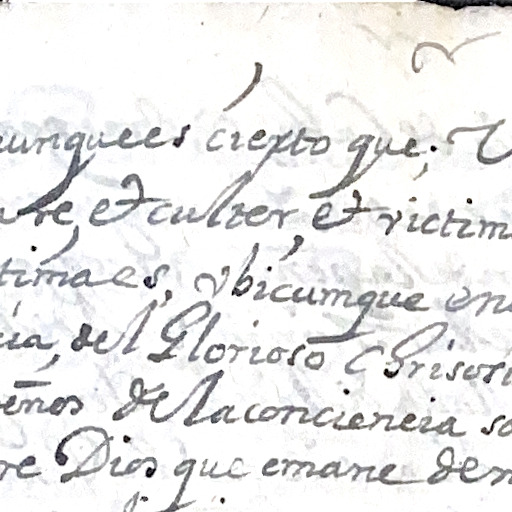 aunquees cierto que, V
are, et culter, et victim
tima es, vbicumque en
cia, del Glorioso Chrisos
eños de la conciencia so
re Dios que emane den